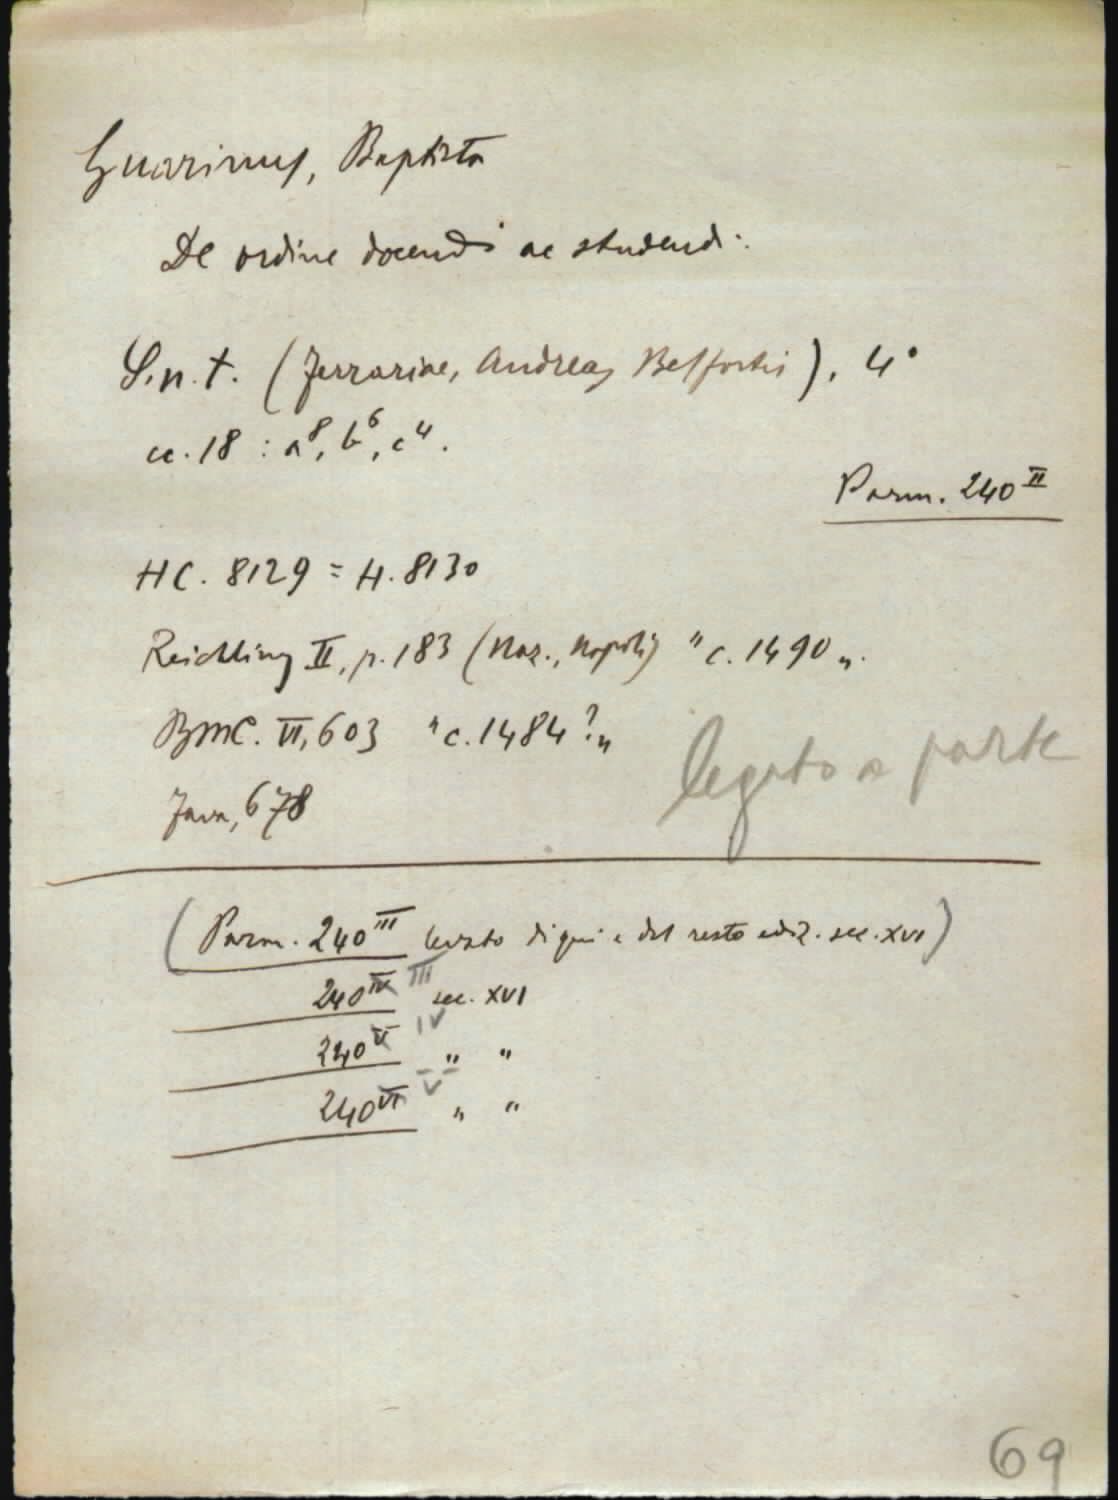 Guarinus, Baptista
De ordine docendi ac studendi.
S.n.t. (Ferrariae, Andreas Belfortis), 4°
cc. 18 : a⁸, b⁶, c⁴.
Parm. 240 II
HC. 8129 = H. 8130
Reichling II, p. 183 (Naz., Napoli) "c. 1490".
BMC. VI, 603 "c. 1484?"
legato a parte
Fava, 678
(Parm. 240 III levato di qui e del resto ediz. sec. XVI)
240 IV III sec. XVI
240 V IV " "
240 VI V " "
69